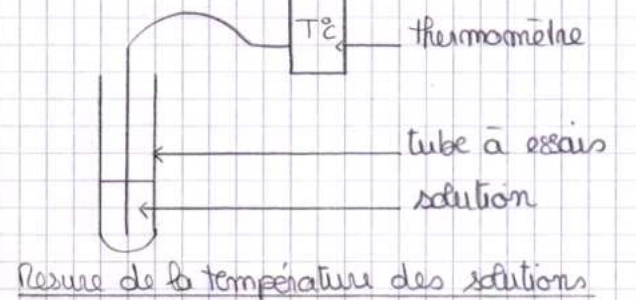 T°C
thermomètre
tube à essais
solution
Mesure de la température des solutions